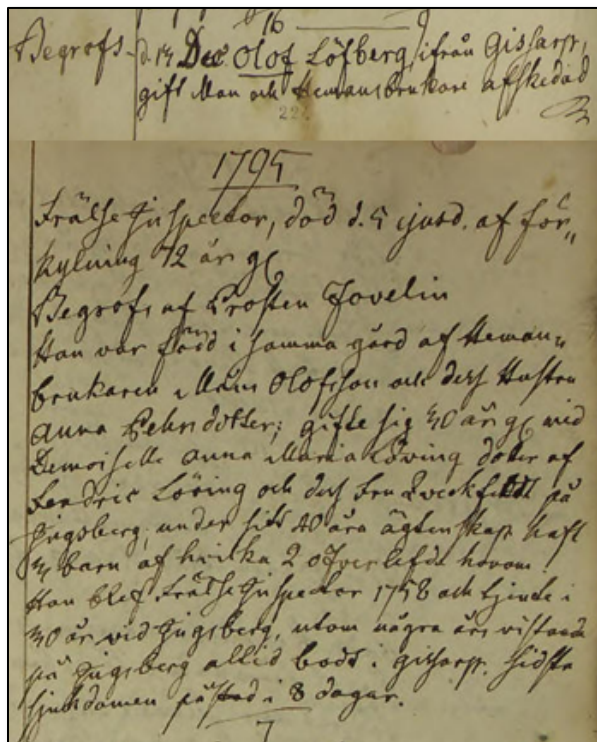 16
Begrofs d. 14 Dec. Olof Löfberg, ifrån Gissarp,
gift Man och Hemansbrukare afskedad
22
1795
Frälse Inspector, död d. 5 ejusd. af för„
kylning 72 år gl
Begrofs af Prosten Jovelin
Han var född i samma gård af Heman„
brukaren Måns Olofsson och dess Hustru
Anna Pehrsdotter; gifte sig 30 år gl med
Demoiselle Anna Maria Löving doter af
Fendric Löving och dess fru på
Jngsberg; under sitt 40 åra ägtenskap haft
3 barn af hvilka 2 öfverlefde honom.
Han blef Frälse Inspector 1758 och tjende i
30 år vid Jngsberg, utom några års vistande
på Jngsberg altid bodt i gissarp. Sidsta
sjukdomen påstod i 8 dagar.
7